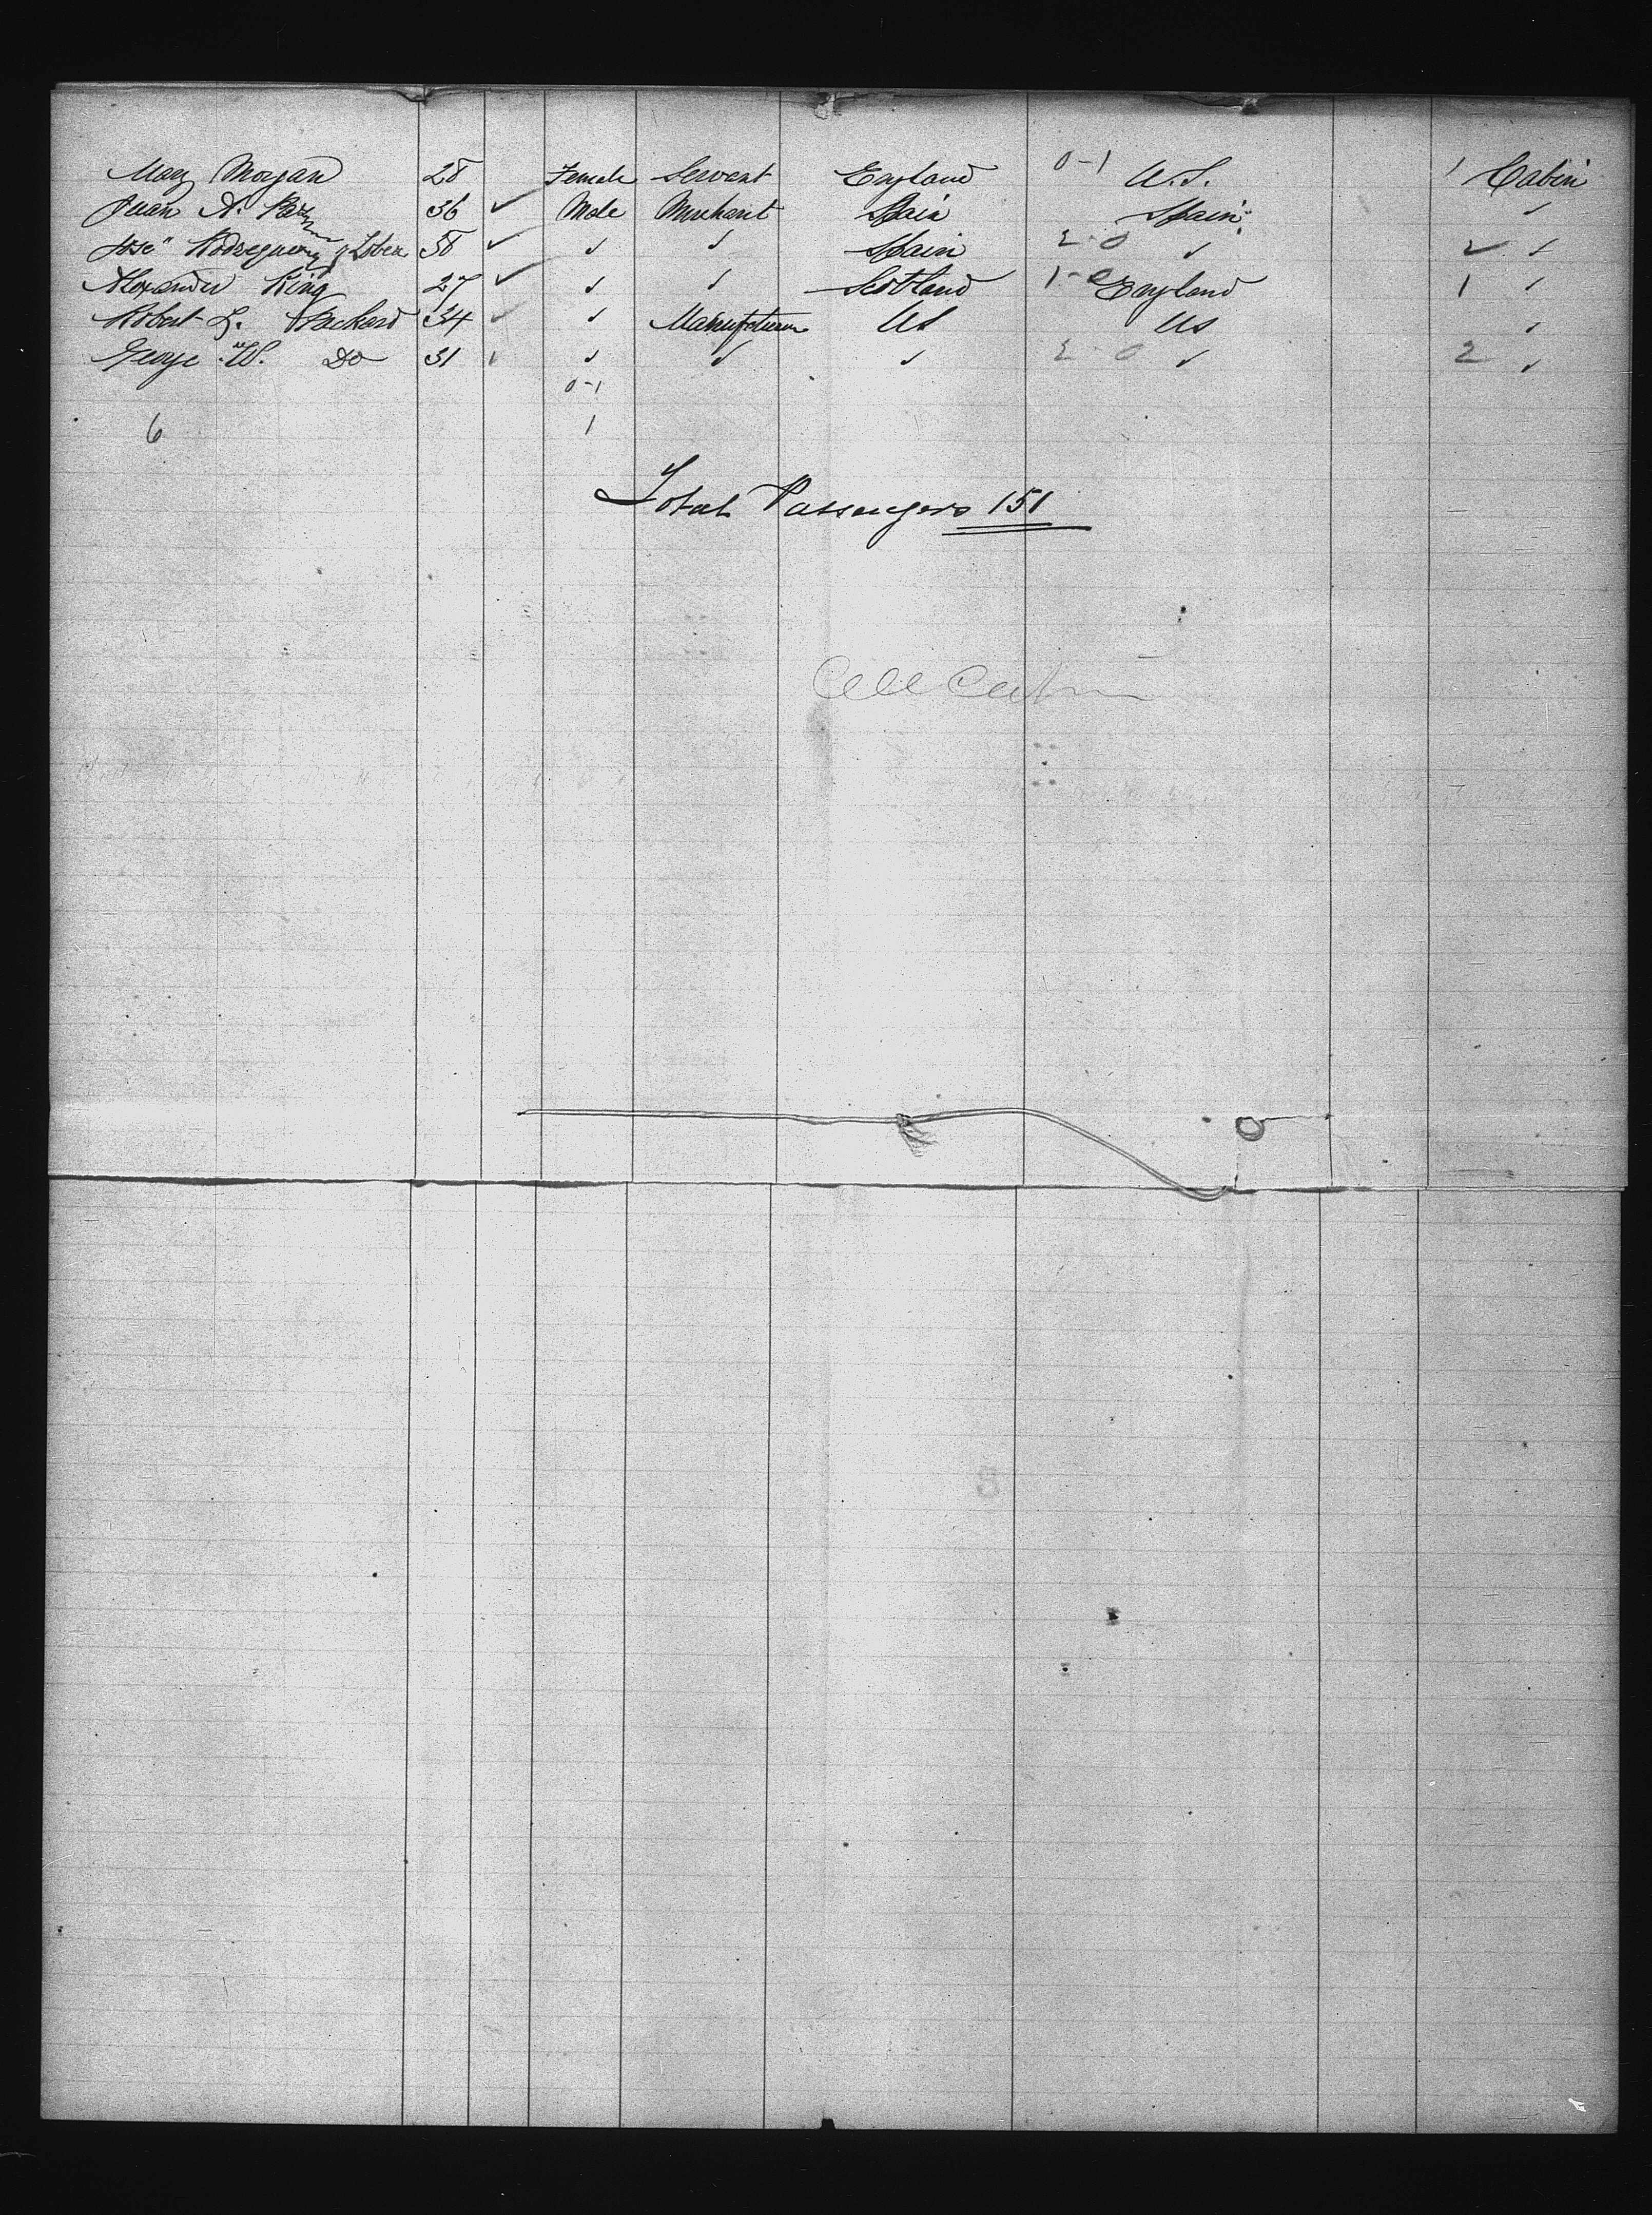 Mary Morgan 28 Female Servant England 0-1 U.S. 1 Cabin
Juan A. 36 ✓ Male Merchant Spain Spain ✓
José Rodreguez y 58 ✓ ✓ ✓ Spain 2-0 ✓ 2 ✓
Alexander King 27 ✓ ✓ ✓ Scotland 1-0 England 1 ✓
Robert L. Packard 34 ✓ ✓ Manufacturer US US ✓
George W. Do 31 ✓ ✓ ✓ 2-0 ✓ 2 ✓
0-1
6 1
Total Passengers 151
All Cabin